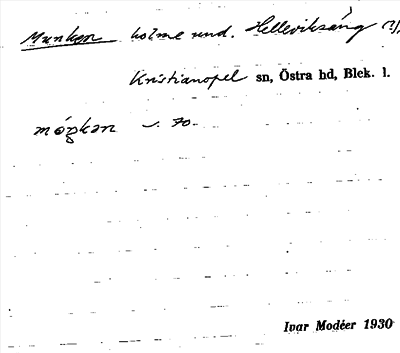 Munken holme und. Helleviksäng (?),
Kristianopel sn, Östra hd, Blek. l.
s. 70.
Ivar Modéer 1930